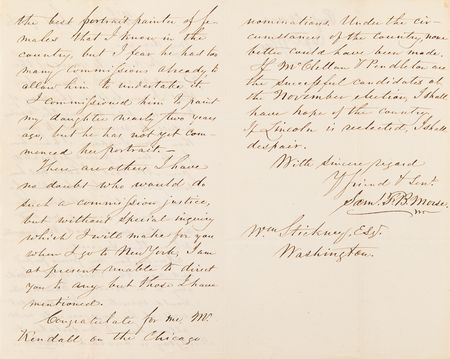 the best portrait painter of fe-
males that I know in the
country, but I fear he has too
many commissions already to
allow him to undertake it.
I commissioned him to paint
my daughter nearly two years
ago, but he has not yet com-
menced her portrait.—
There are others I have
no doubt who would do
such a commission justice,
but without special inquiry
which I will make for you
when I go to New York, I am
at present unable to direct
you to any but those I have
mentioned.
Congratulate for me Mr.
Kendall on the Chicago
nominations. Under the cir-
cumstances of the country, none
better could have been made.
If McClellan & Pendleton are
the successful candidates at
the November election, I shall
have hope of the country.
If Lincoln is reelected, I shall
despair.
With sincere regard
Yr friend & Servt.
Saml. F. B. Morse.
Wm Stickney, Esqr.
Washington.